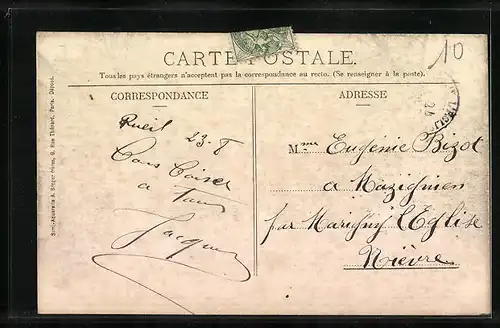 CARTE POSTALE.
Tous les pays étrangers n'acceptent pas la correspondance au recto. (Se renseigner à la poste).
10
CORRESPONDANCE
ADRESSE
Rueil 23-8
Bons Baisers
a Tous
Jacques
Mme Eugénie Bizot
a Mazignien
par Marigny l'Eglise
Nièvre